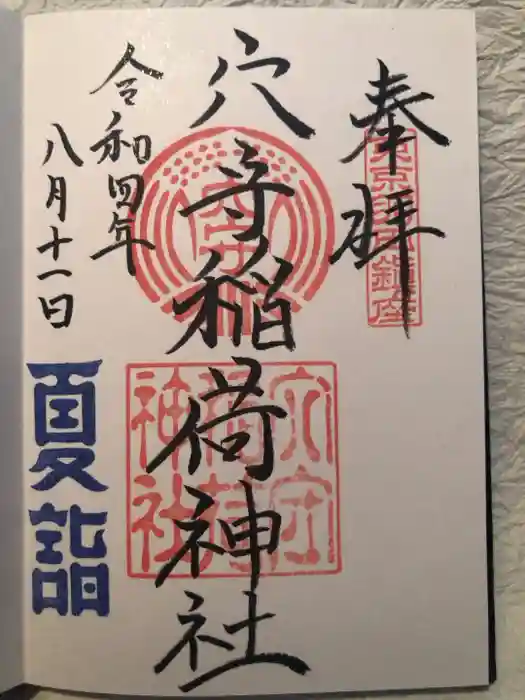 奉拝
東京羽田鎮座
穴守稲荷神社
穴守
稲荷
神社
令和四年
八月十一日
夏詣